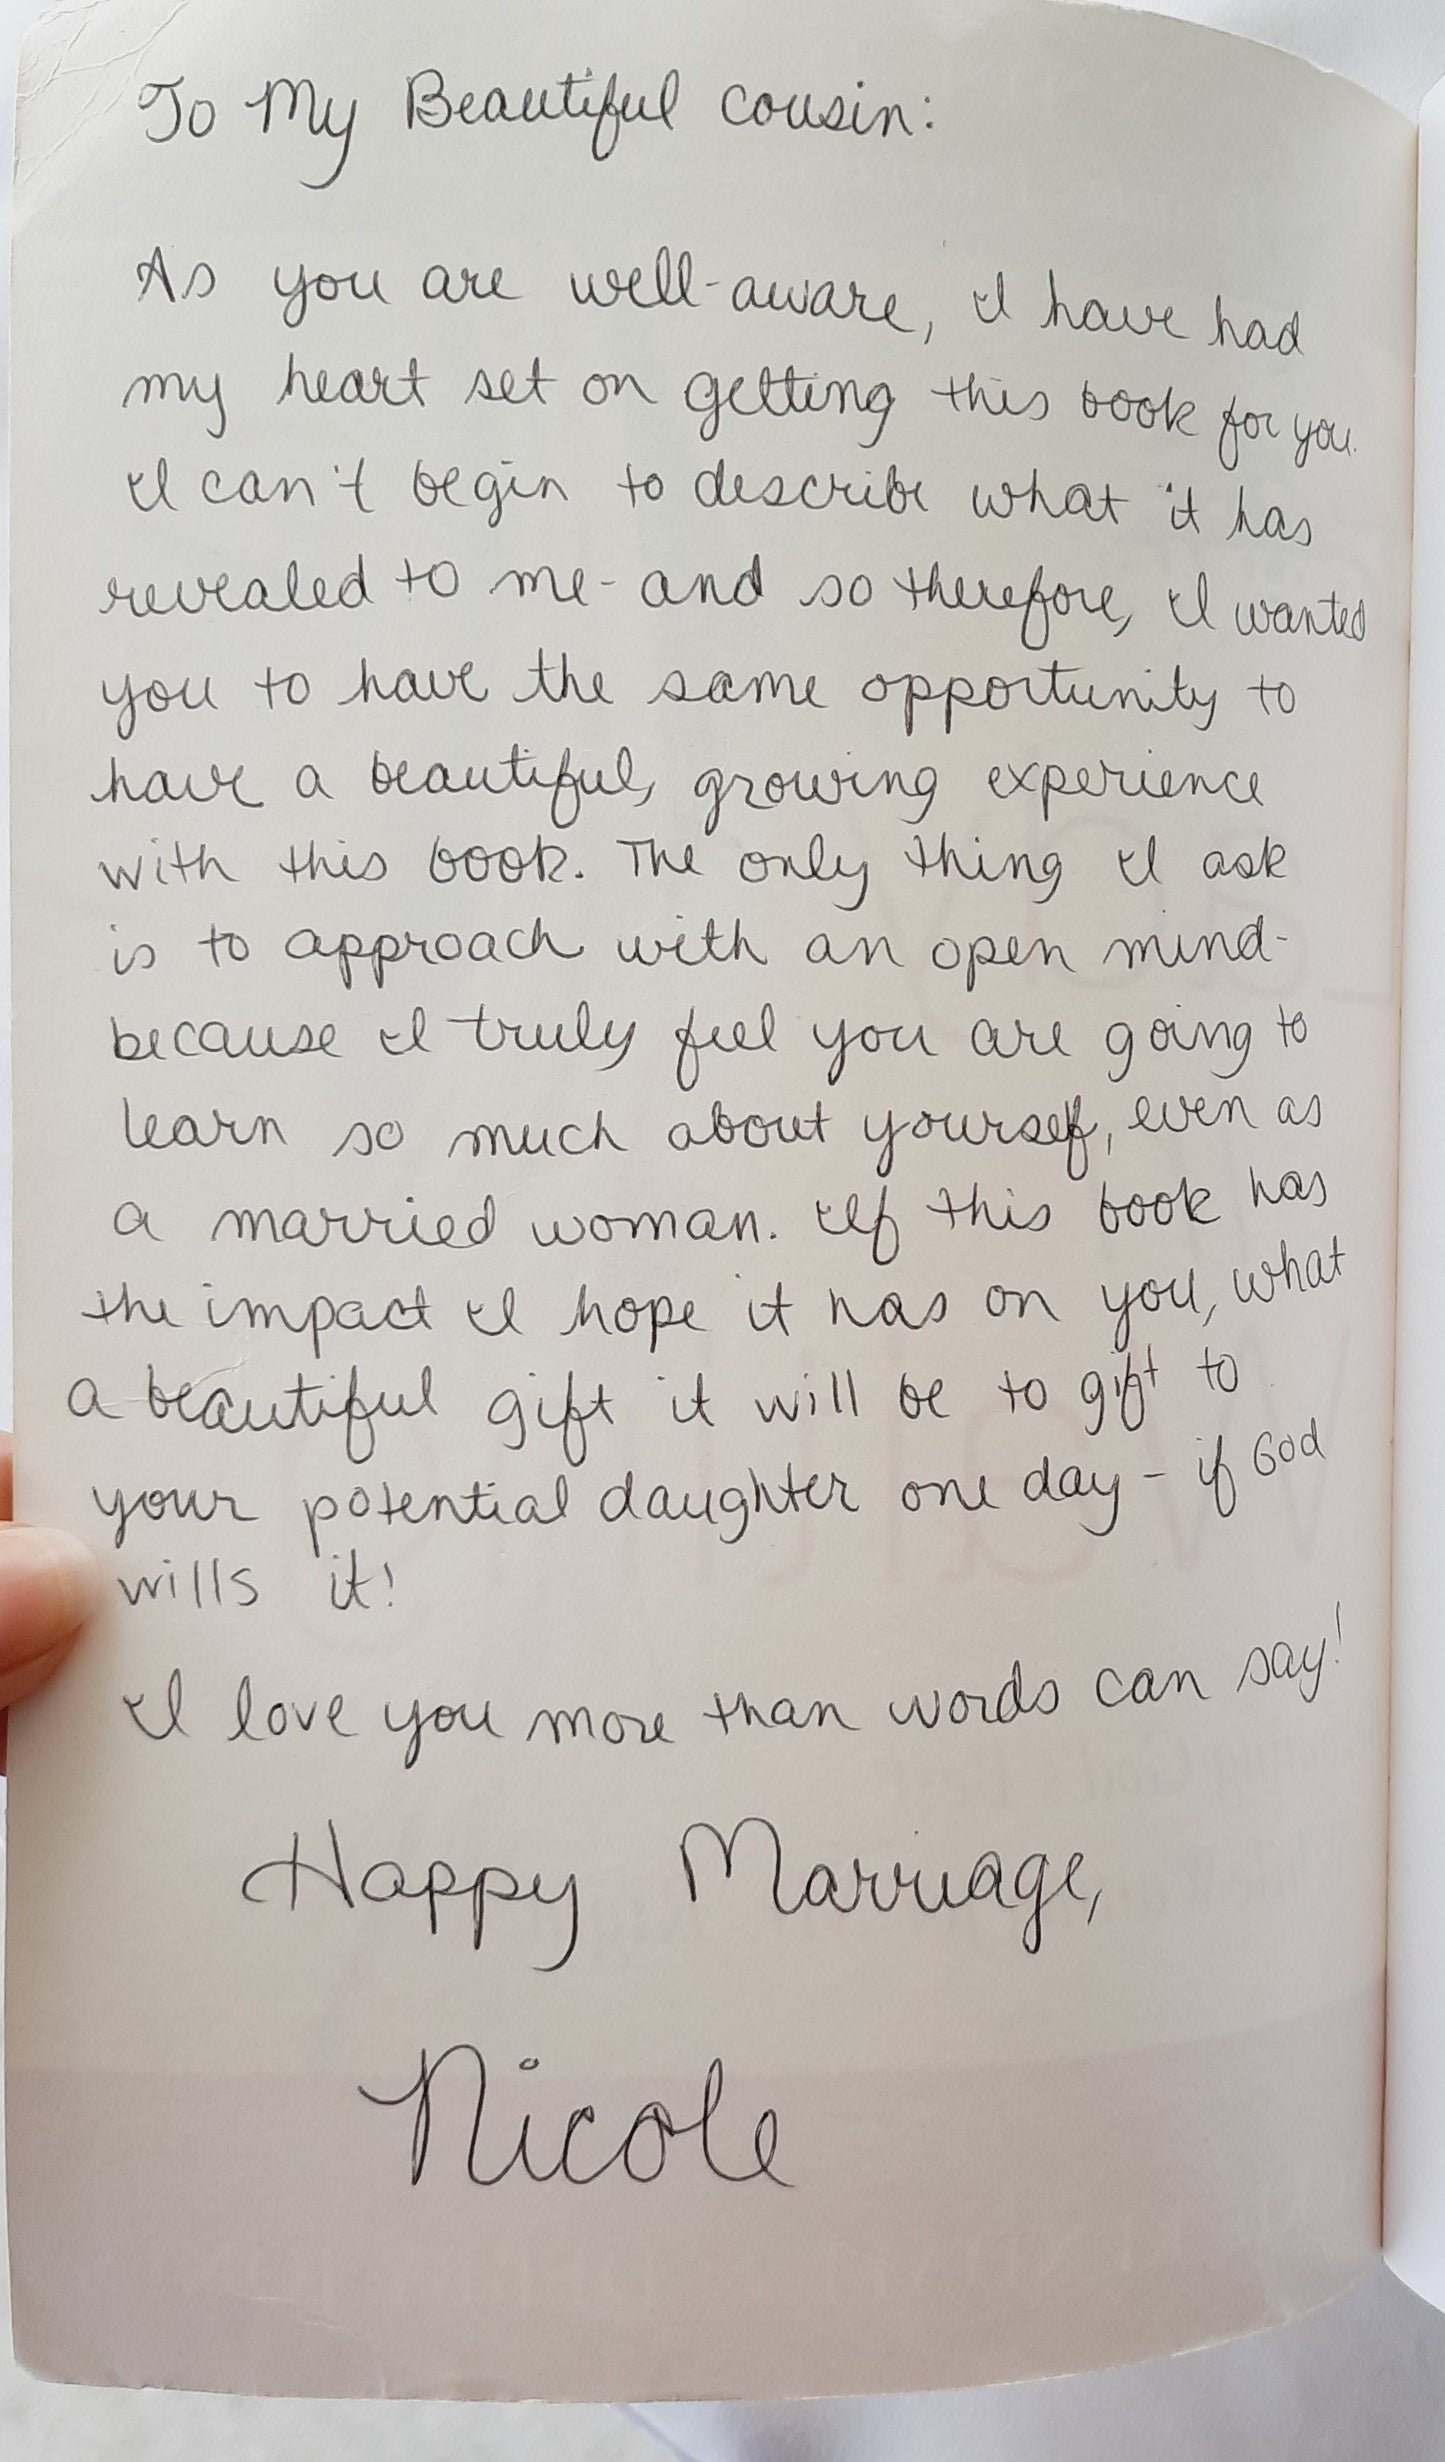 To My Beautiful cousin:
As you are well-aware, I have had
my heart set on getting this book for you.
I can't begin to describe what it has
revealed to me - and so therefore, I wanted
you to have the same opportunity to
have a beautiful, growing experience
with this book. The only thing I ask
is to approach with an open mind-
because I truly feel you are going to
learn so much about yourself, even as
a married woman. If this book has
the impact I hope it has on you, what
a beautiful gift it will be to gift to
your potential daughter one day - if God
wills it!
I love you more than words can say!
Happy Marriage,
Nicole